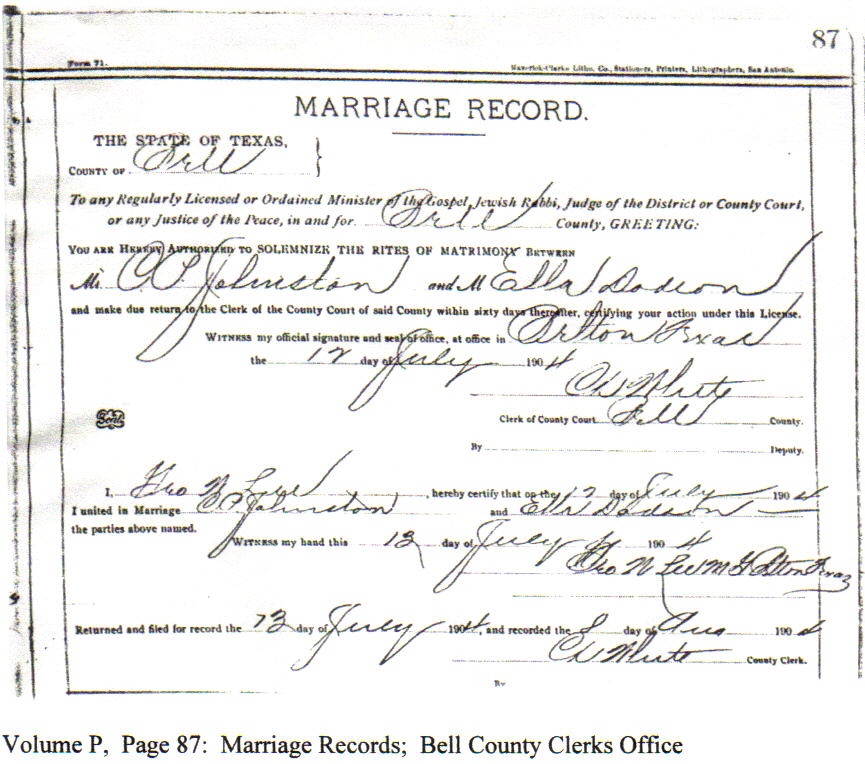 87
Form 71.
Maverick-Clarke Litho. Co., Stationers, Printers, Lithographers, San Antonio.
MARRIAGE RECORD.
THE STATE OF TEXAS,
COUNTY OF Bell
To any Regularly Licensed or Ordained Minister of the Gospel, Jewish Rabbi, Judge of the District or County Court,
or any Justice of the Peace, in and for Bell County, GREETING:
YOU ARE HEREBY AUTHORIZED TO SOLEMNIZE THE RITES OF MATRIMONY BETWEEN
Mr. C P Johnston and M Ella Dodson
and make due return to the Clerk of the County Court of said County within sixty days thereafter, certifying your action under this License.
WITNESS my official signature and seal of office, at office in Belton Texas
the 12 day of July 1904
CW White
Clerk of County Court Bell County.
Seal
By Deputy.
I, Geo N Lee, hereby certify that on the 12 day of July 1904
I united in Marriage C P Johnston and Ella Dodson
the parties above named.
WITNESS my hand this 13 day of July 1904
Geo N Lee M G Belton Texas
Returned and filed for record the 13 day of July 1904, and recorded the 8 day of Aug 1904
CW White County Clerk.
By
Volume P, Page 87: Marriage Records; Bell County Clerks Office